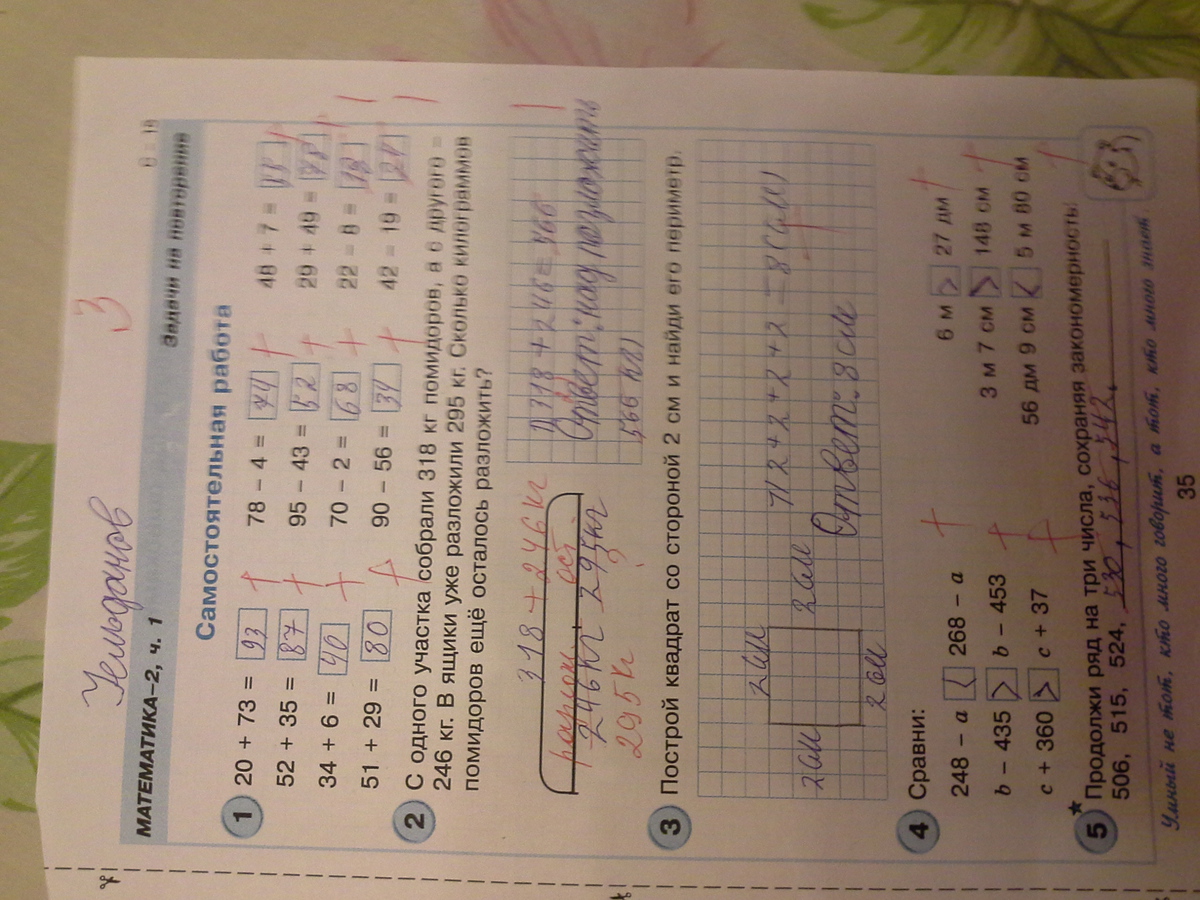 3
Уельданов
МАТЕМАТИКА–2, ч. 1
Задачи на повторение
Самостоятельная работа
1
20 + 73 = 93 + 78 – 4 = 74 + 48 + 7 =
52 + 35 = 87 + 95 – 43 = 52 + 29 + 49 = 78 +
34 + 6 = 40 + 70 – 2 = 68 + 22 – 8 =
51 + 29 = 80 + 90 – 56 = 34 + 42 – 19 =
2 С одного участка собрали 318 кг помидоров, а с другого –
246 кг. В ящики уже разложили 295 кг. Сколько килограммов
помидоров ещё осталось разложить?
318 + 246 кг
ост.
246 кг 295 кг
295 кг ?
1) 318 + 246 = 566
Ответ:
566 кг)
3 Построй квадрат со стороной 2 см и найди его периметр.
2 см
2 см 2 см
2 см
2 + 2 + 2 + 2 = 8 (см)
Ответ: 8 см
4 Сравни:
248 – a < 268 – a + 6 м > 27 дм +
b – 435 > b – 453 + 3 м 7 см > 148 см +
c + 360 > c + 37 + 56 дм 9 см < 5 м 80 см +
5* Продолжи ряд на три числа, сохраняя закономерность:
506, 515, 524, 530, 536, 542.
Умный не тот, кто много говорит, а тот, кто много знает.
35